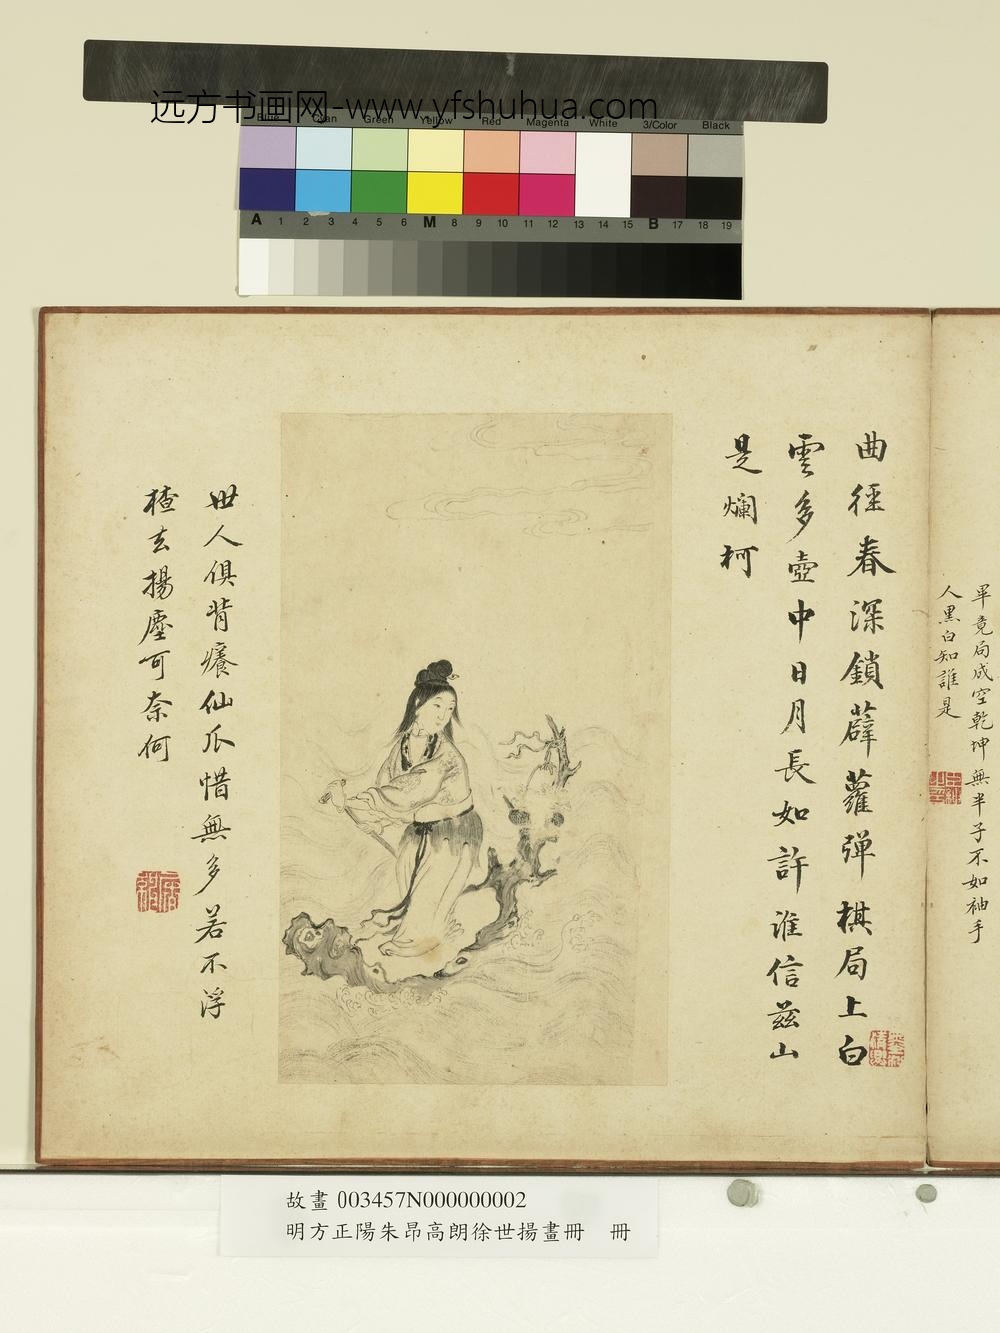 远方书画网-www.yfshuhua.com
Blue Cyan Green Yellow Red Magenta White 3/Color Black
A 1 2 3 4 5 6 M 8 9 10 11 12 13 14 15 B 17 18 19
畢竟局成空乾坤無半子不如袖手
人黑白知誰是
曲徑春深鎖薜蘿彈棋局上白
雲多壺中日月長如許誰信茲山
是爛柯
世人俱背癢仙爪惜無多若不浮
楂去揚塵可奈何
故畫 003457N000000002
明方正陽朱昂高朗徐世揚畫冊 冊